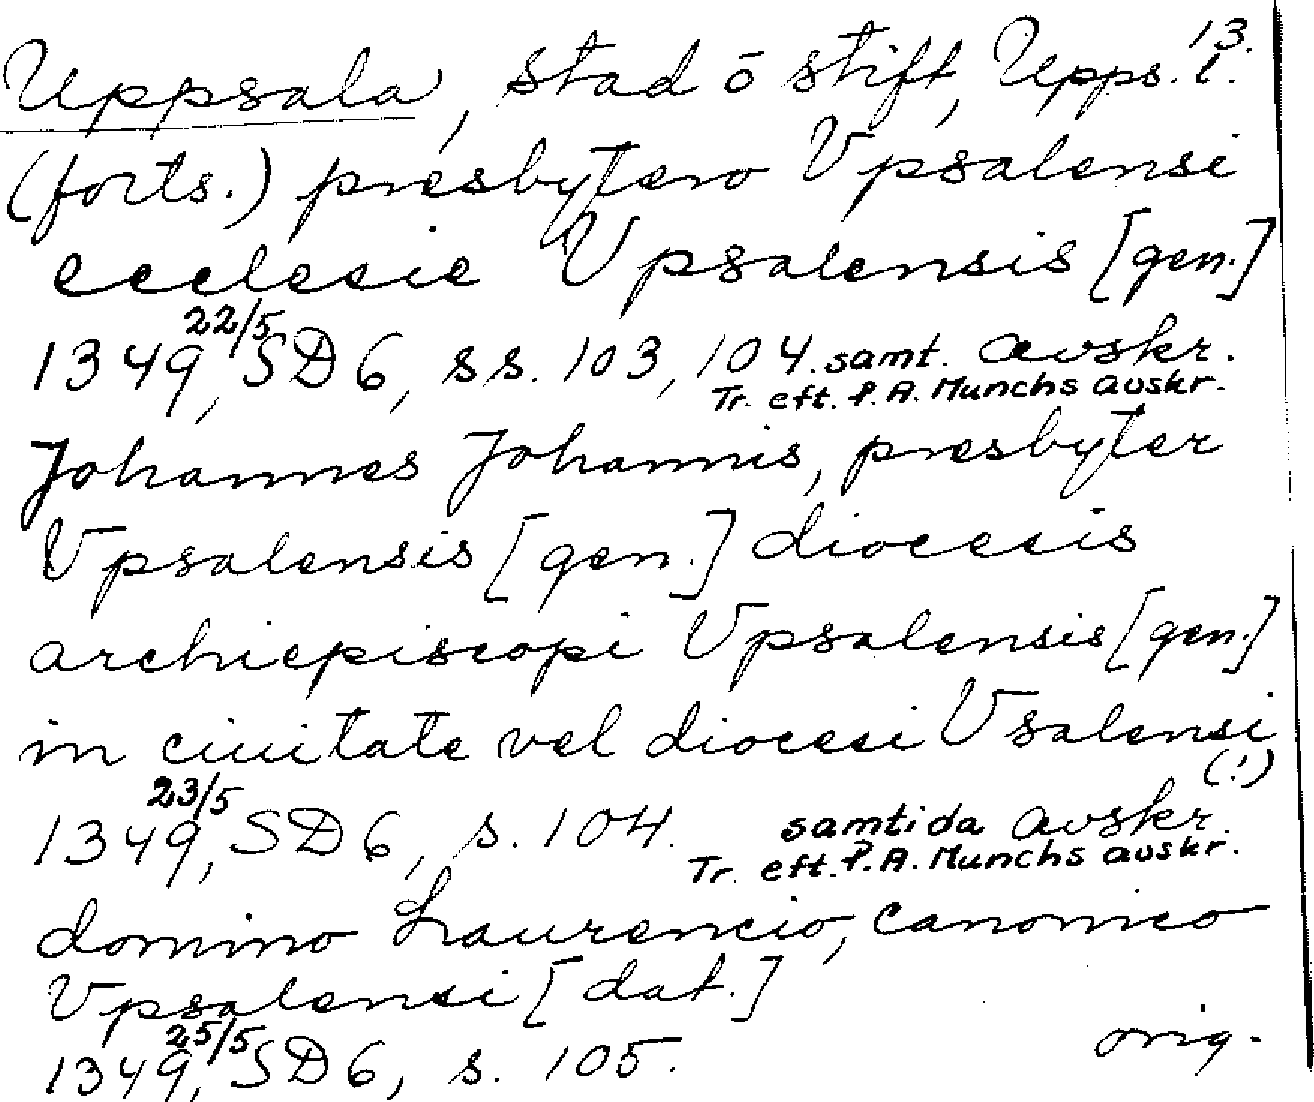 13.
Uppsala, stad o stift, Upps. l.
(forts.) presbytero Vpsalensi
ecclesie Vpsalensis [gen.]
1349 22/5, SD 6, ss. 103, 104. samt. avskr.
Tr. eft. P. A. Munchs avskr.
Johannes Johannis, presbyter
Vpsalensis [gen.] diocesis
archiepiscopi Vpsalensis [gen.]
in ciuitate vel diocesi Vsalensi
(!)
1349 23/5, SD 6, s. 104. samtida avskr.
Tr. eft. P. A. Munchs avskr.
domino Laurencio, canonico
Vpsalensi [dat.]
1349 25/5, SD 6, s. 105. orig.